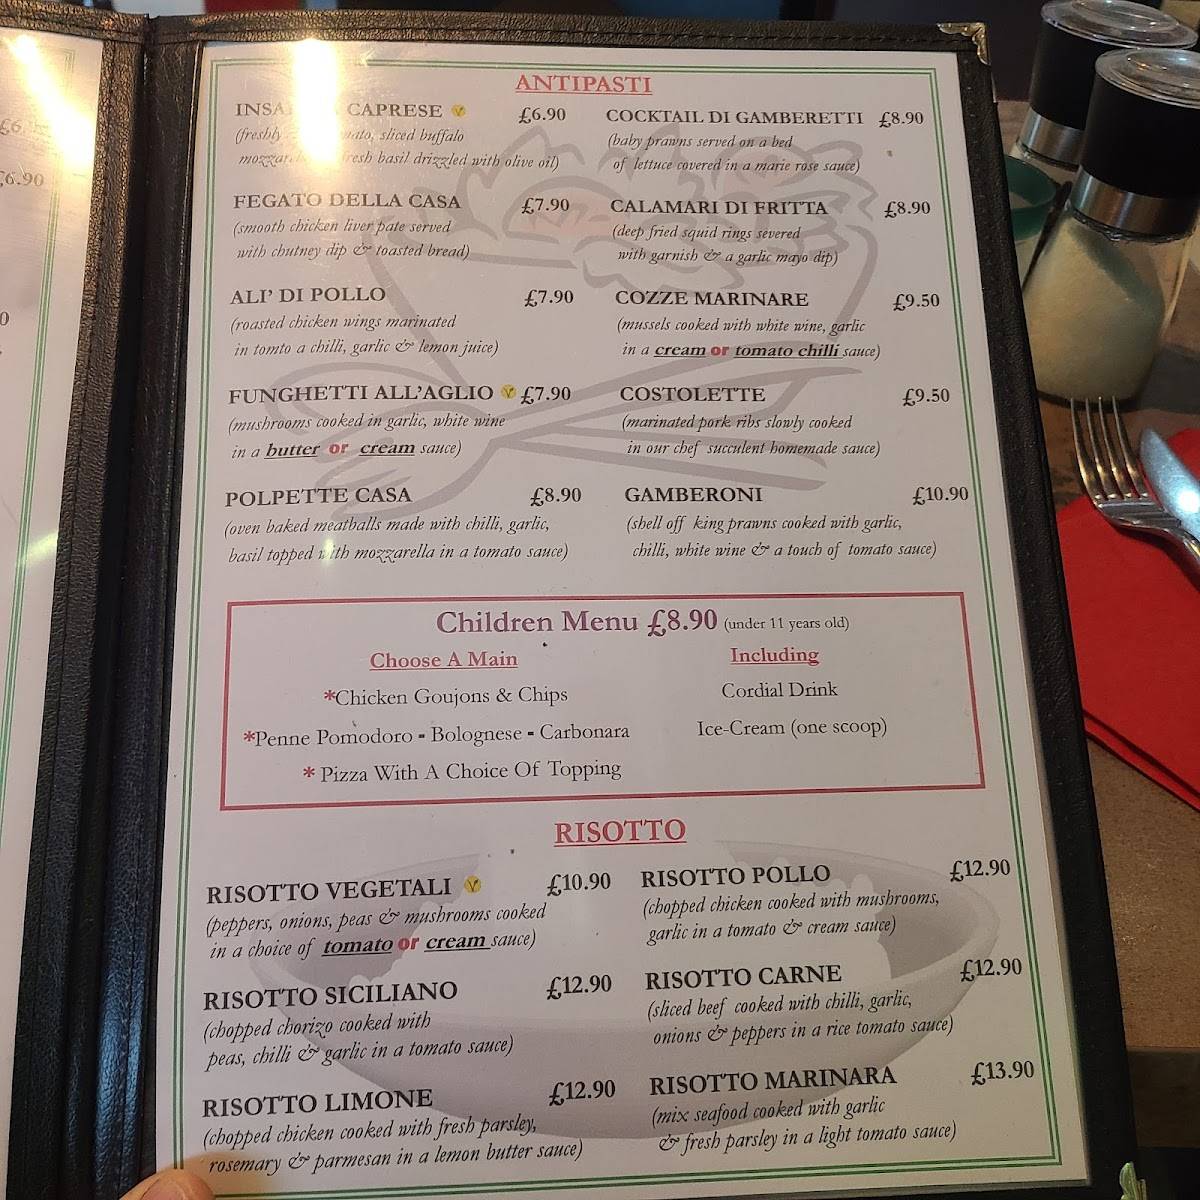 ANTIPASTI
CAPRESE £6.90
(freshly sliced buffalo
fresh basil drizzled with olive oil)
FEGATO DELLA CASA £7.90
(smooth chicken liver pate served
with chutney dip & toasted bread)
ALI' DI POLLO £7.90
(roasted chicken wings marinated
in tomto a chilli, garlic & lemon juice)
FUNGHETTI ALL'AGLIO £7.90
(mushrooms cooked in garlic, white wine
in a butter or cream sauce)
POLPETTE CASA £8.90
(oven baked meatballs made with chilli, garlic,
basil topped with mozzarella in a tomato sauce)
COCKTAIL DI GAMBERETTI £8.90
(baby prawns served on a bed
of lettuce covered in a marie rose sauce)
CALAMARI DI FRITTA £8.90
(deep fried squid rings severed
with garnish & a garlic mayo dip)
COZZE MARINARE £9.50
(mussels cooked with white wine, garlic
in a cream or tomato chilli sauce)
COSTOLETTE £9.50
(marinated pork ribs slowly cooked
in our chef succulent homemade sauce)
GAMBERONI £10.90
(shell off king prawns cooked with garlic,
chilli, white wine & a touch of tomato sauce)
Children Menu £8.90 (under 11 years old)
Choose A Main
*Chicken Goujons & Chips
*Penne Pomodoro - Bolognese - Carbonara
* Pizza With A Choice Of Topping
Including
Cordial Drink
Ice-Cream (one scoop)
RISOTTO
RISOTTO VEGETALI £10.90
(peppers, onions, peas & mushrooms cooked
in a choice of tomato or cream sauce)
RISOTTO SICILIANO £12.90
(chopped chorizo cooked with
peas, chilli & garlic in a tomato sauce)
RISOTTO LIMONE £12.90
(chopped chicken cooked with fresh parsley,
rosemary & parmesan in a lemon butter sauce)
RISOTTO POLLO £12.90
(chopped chicken cooked with mushrooms,
garlic in a tomato & cream sauce)
RISOTTO CARNE £12.90
(sliced beef cooked with chilli, garlic,
onions & peppers in a rice tomato sauce)
RISOTTO MARINARA £13.90
(mix seafood cooked with garlic
& fresh parsley in a light tomato sauce)
£6.90